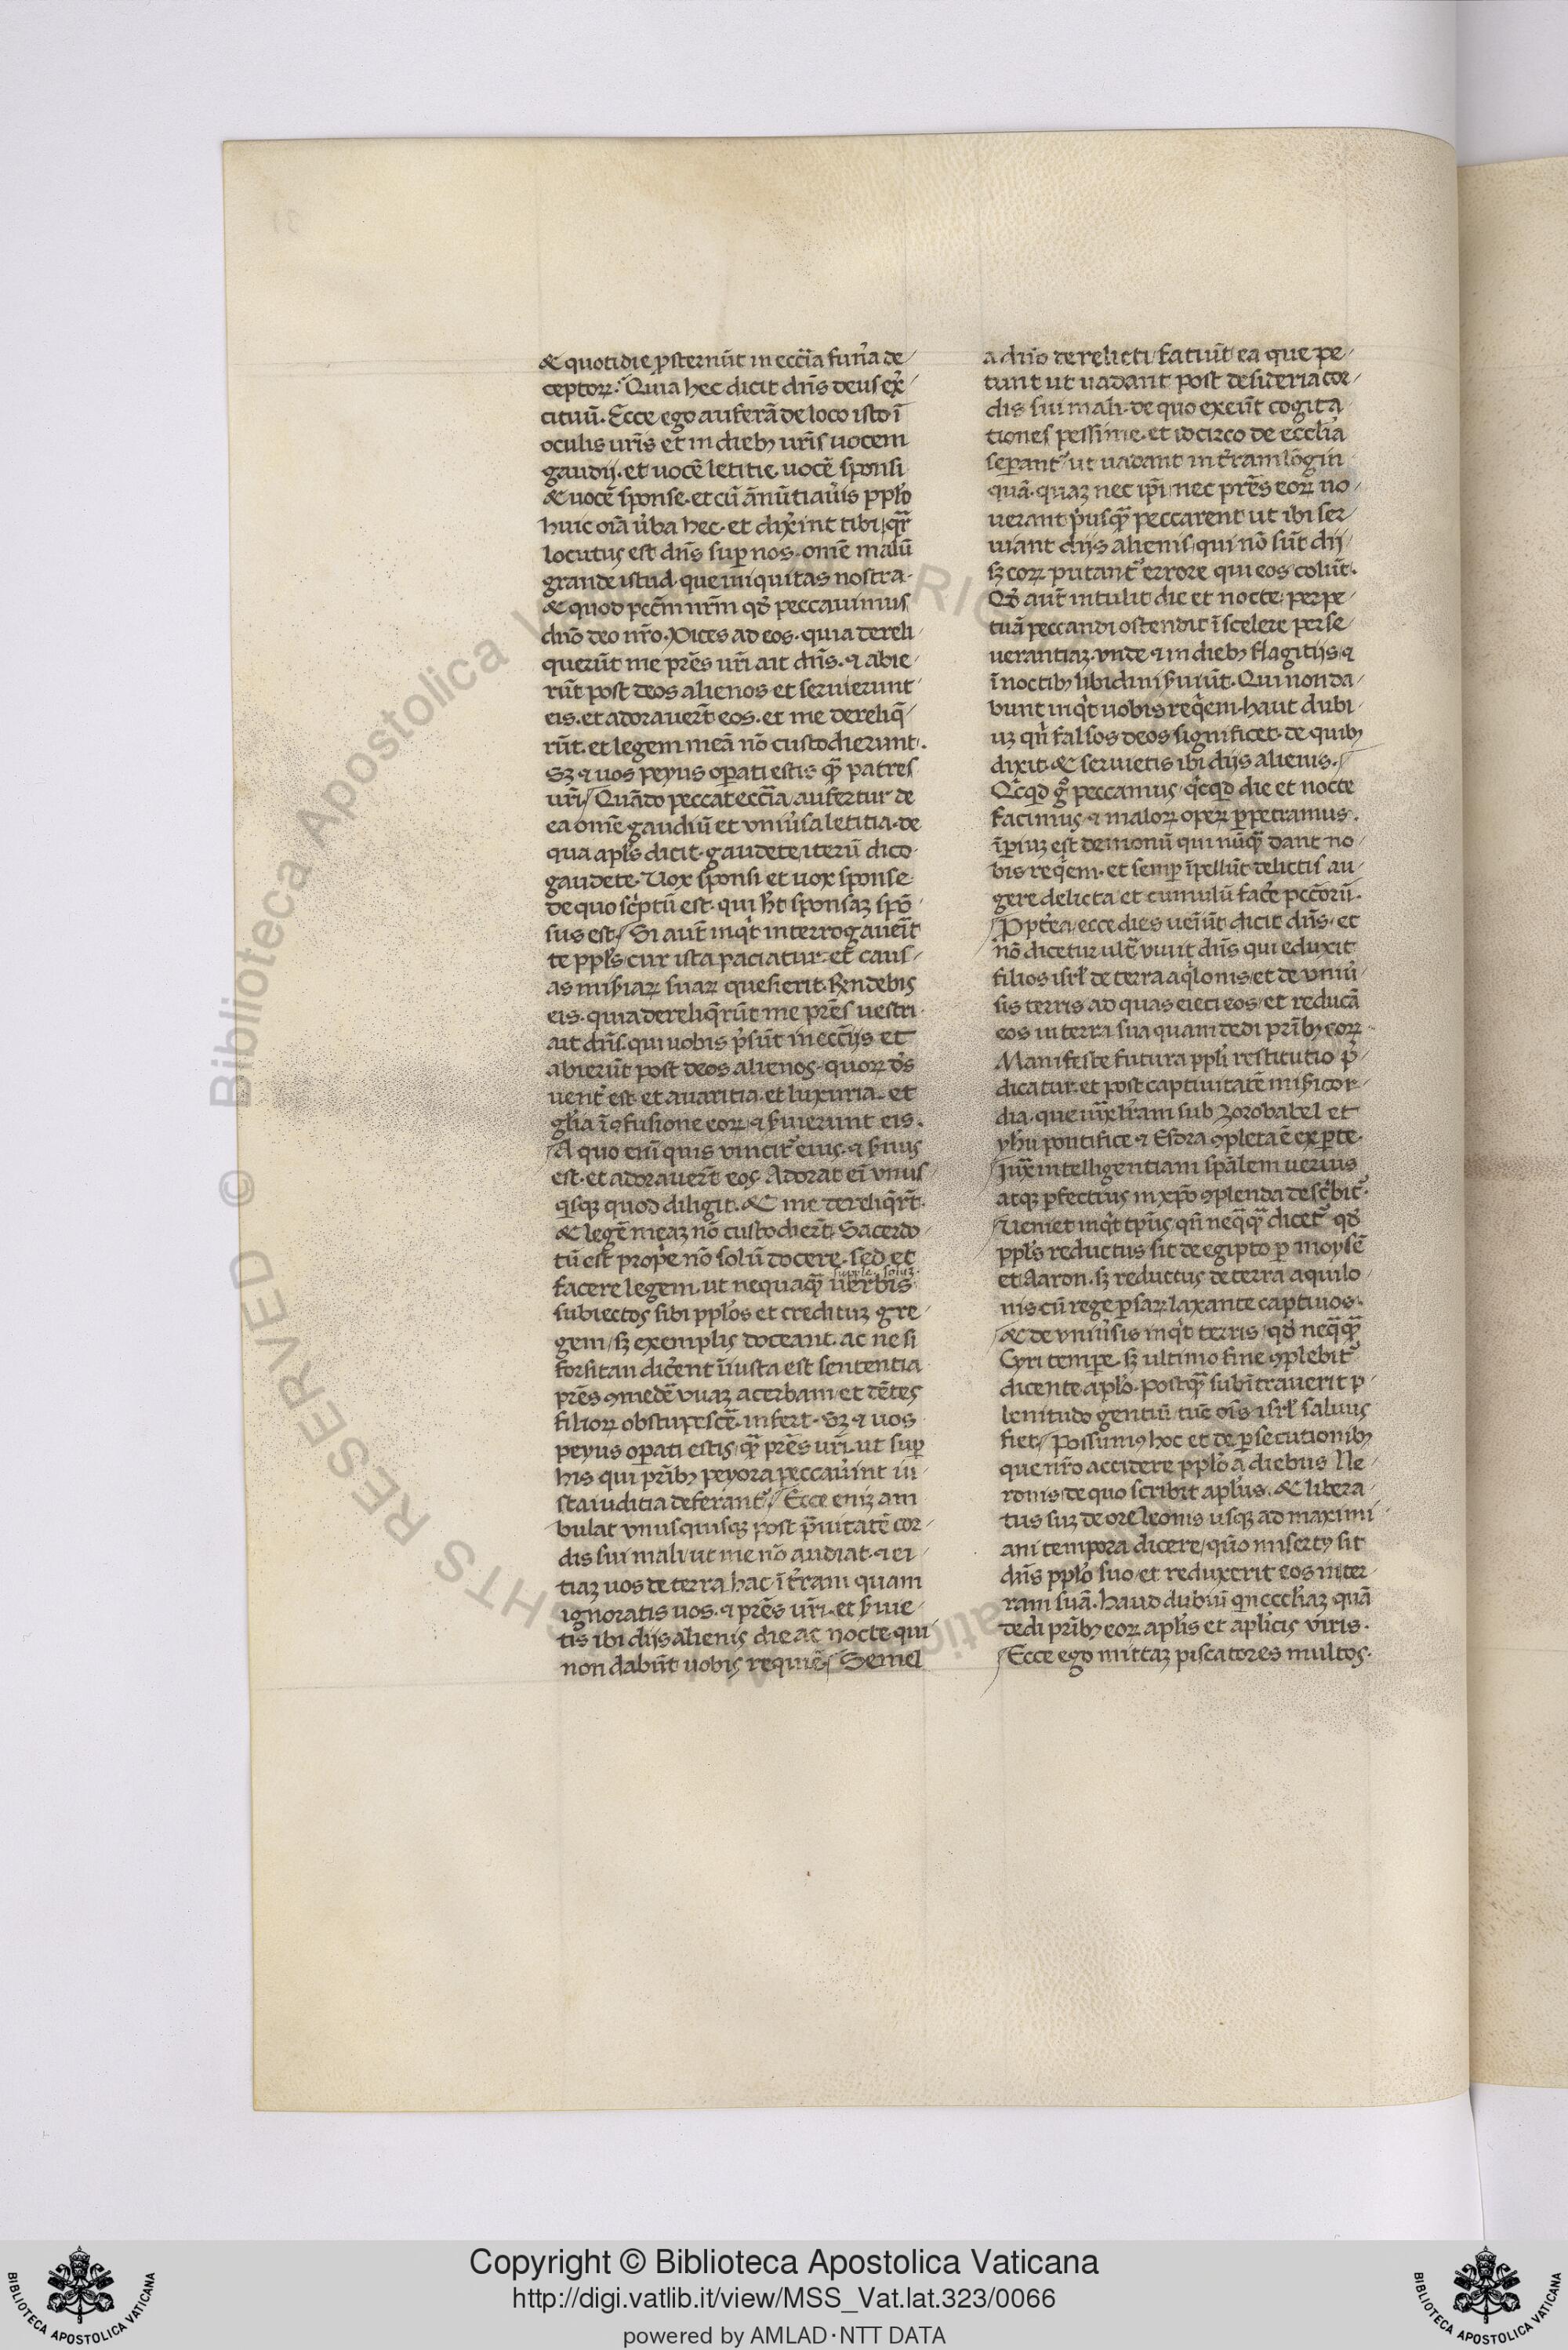 & quotidie ꝓsternūt in eccl̄ia fun̓a de⸗
ceptoꝝ. Quia hec dicit dn̄s deus ex̓⸗
cituū. Ecce ego auferā de loco isto ī
oculis ur̄is et in dieb; ur̄is uocem
gaudij. et uocē letitie. uocē sponsi
& uocē sponse. et cū ānūtiau̓is pp̄lo
huic oīa u̓ba hec. et dix̓int tibi. qr̄
locutus est dn̄s suꝑ nos. om̄e malū
grande istud. que iniquitas nostra.
& quod pcc̄m nr̄m qđ peccauimus
dn̄o deo nr̄o. Dices ad eos. quia dereli⸗
querūt me pr̄es ur̄i ait dn̄s. ⁊ abie⸗
rūt post deos alienos et seruierunt
eis. et adorauer̄t eos. et me dereliq̄⸗
rūt. et legem meā nō custodierunt.
Sꝫ ⁊ uos peyus oꝑati estis qȝ̄ patres
ur̄i. Quādo peccat eccl̄ia aufertur de
ea om̄e gaudiū et vniu̓sa letitia. de
qua apl̄s dicit. gaudete iterū dico
gaudete. Vox sponsi et uox sponse.
de quo sc̓ptū est. qui h̄t sponsaꝫ spō⸗
sus est. Si aut̄ inq̓t interrogauer̄it
te ppl̄s cur ista paciatur. et caus⸗
as miẜiaꝝ suaꝝ quesierit. Rn̄debis
eis. quia dereliq̄rūt me pr̄es uestri
ait dn̄s. qui uobis p̓sūt in eccl̄ijs et
abierūt post deos alienos. quoꝝ d̓s
uent̓ est. et auaritia. et luxuria. et
gl̄ia ī ꝯfusione eoꝝ. ⁊ ẜuierunt eis.
A quo eni quis vincit̓ eius. ⁊ ẜuus
est. et adorauer̄t eos. Adorat ei̓ vnus⸗
q̓sqꝫ quod diligit. & me dereliq̄r̄t.
& legē meaꝫ nō custodier̄t. Sacerdo⸗
tū est prop̓e nō solū docere. sed et
facere legem. ut nequaqȝ̄ uerbis
supple. soluꝫ.
subiectos sibi ppl̓os et credituꝫ gre⸗
gem. sꝫ exemplis doceant. ac ne si
forsitan dic̓ent īiusta est sententia
pr̄es ꝯmedē̓ vuaꝫ acerbam. et dētes
filioꝝ obstupescē̓. infert. Sꝫ ⁊ uos
peyus oꝑati estis. qȝ̄ pr̄es ur̄i. ut suꝑ
his qui pr̄ib; peyora peccau̓int iu⸗
sta iuditia deferant̓. Ecce eniꝫ am
bulat vnusquisqꝫ post p̄uitatē cor⸗
dis sui mali. ut me nō audiat. ⁊ ei⸗
tiaꝫ uos de terra hac ī t̓ram quam
ignoratis uos. ⁊ pr̄es ur̄i. et ẜuie⸗
tis ibi dijs alienis die ac nocte. qui
non dabūt uobis requiē. Semel
a dn̄o derelicti. fatiūt ea que pe⸗
tunt ut uadant post desideria cor⸗
dis sui mali. de quo exeūt cogita⸗
tiones pessime. et idcirco de eccl̄ia
seꝑant̓. ut uadant in t̓ram lōgin⸗
quā. quaꝫ nec ip̄i nec pr̄es eoꝝ no⸗
uerant p̓usqȝ̄ peccarent. ut ibi ser⸗
uiant dijs alienis. qui nō sūt dij
sꝫ eoꝝ putant̓ errore qui eos colūt.
Qđ aut̄ intulit die et nocte. perpe⸗
tuā peccandi ostendit ī scelere perse⸗
uerantiaꝫ. vnde ⁊ in dieb; flagitijs ⁊
ī noctib; libidini ẜuiūt. Qui non da⸗
bunt inq̓t uobis req̓em. haut dubi⸗
uꝫ qn̄ falsos deos significet. de quib;
dixit. & seruietis ibi dijs alienis.
Qc̓qd g̊ peccamus. q̓cqd die et nocte
facimus. ⁊ maloꝝ opeꝝ ꝑpetramus.
īꝑiuꝫ est demonū qui nūqȝ̄ dant no⸗
bis req̓em. et semꝑ īpellūt delictis au⸗
gere delicta et cumulū fac̓e pcc̄oꝝ.
Ppt̓ea ecce dies ueīut dicit dn̄s. et
nō dicetur ult̓. viuit dn̄s qui eduxit
filios isrl̄ de terra aq̓lonis. et de vniu̓⸗
sis terris ad quas eieci eos. et reducā
eos in terra sua quam dedi pr̄ib; eoꝝ.
Manifeste futura ppl̓i restitutio p̄⸗
dicatur. et post captiuitatē miẜicor⸗
dia. que iux̄ t̓ram sub Zorobabel et
yh̄u pontifice. ⁊ Esdra ꝯpleta ē ex ꝑte.
Iux̄ intelligentiam spāle̅m uerius
atqꝫ ꝑfectius in xp̄o ꝯplenda desc̓bit̓.
Veniet inq̓t tp̄us qn̄ neq̄qȝ̄ dicet̓ qđ
ppl̄s reductus sit de egipto ꝑ moysē
et Aaron. sꝫ reductus de terra aquilo⸗
nis cū rege ꝑsaꝝ laxante captiuos.
& de vniu̓sis inq̓t terris. qđ neq̄qȝ̄
Cyri tempe. sꝫ ultimo fine ꝯplebit̓
dicente apl̄o. postqȝ̄ subītrauerit p⸗
lenitudo gentiū tūc ois̄ isrl̄ saluus
fiet. Possum; hoc et de ꝑsecutionib;
que nr̄o accidere ppl̓o a diebus Ne⸗
ronis. de quo scribit apl̄us. & libera⸗
tus suꝫ de ore leonis usqꝫ ad maximi⸗
ani tempora dicere. qn̄o misert; sit
dn̄s ppl̓o suo. et reduxerit eos in ter⸗
ram suā. haud dubiū qn̄ eccl̄iaꝫ quā
dedi pr̄ib; eoꝝ apl̄is et apl̄icis viris.
Ecce ego mittaꝫ piscatores multos.
© Biblioteca Apostolica Vaticana
RIGHTS RESERVED
Copyright © Biblioteca Apostolica Vaticana
http://digi.vatlib.it/view/MSS_Vat.lat.323/0066
powered by AMLAD·NTT DATA
BIBLIOTECA APOSTOLICA VATICANA
BIBLIOTECA APOSTOLICA VATICANA